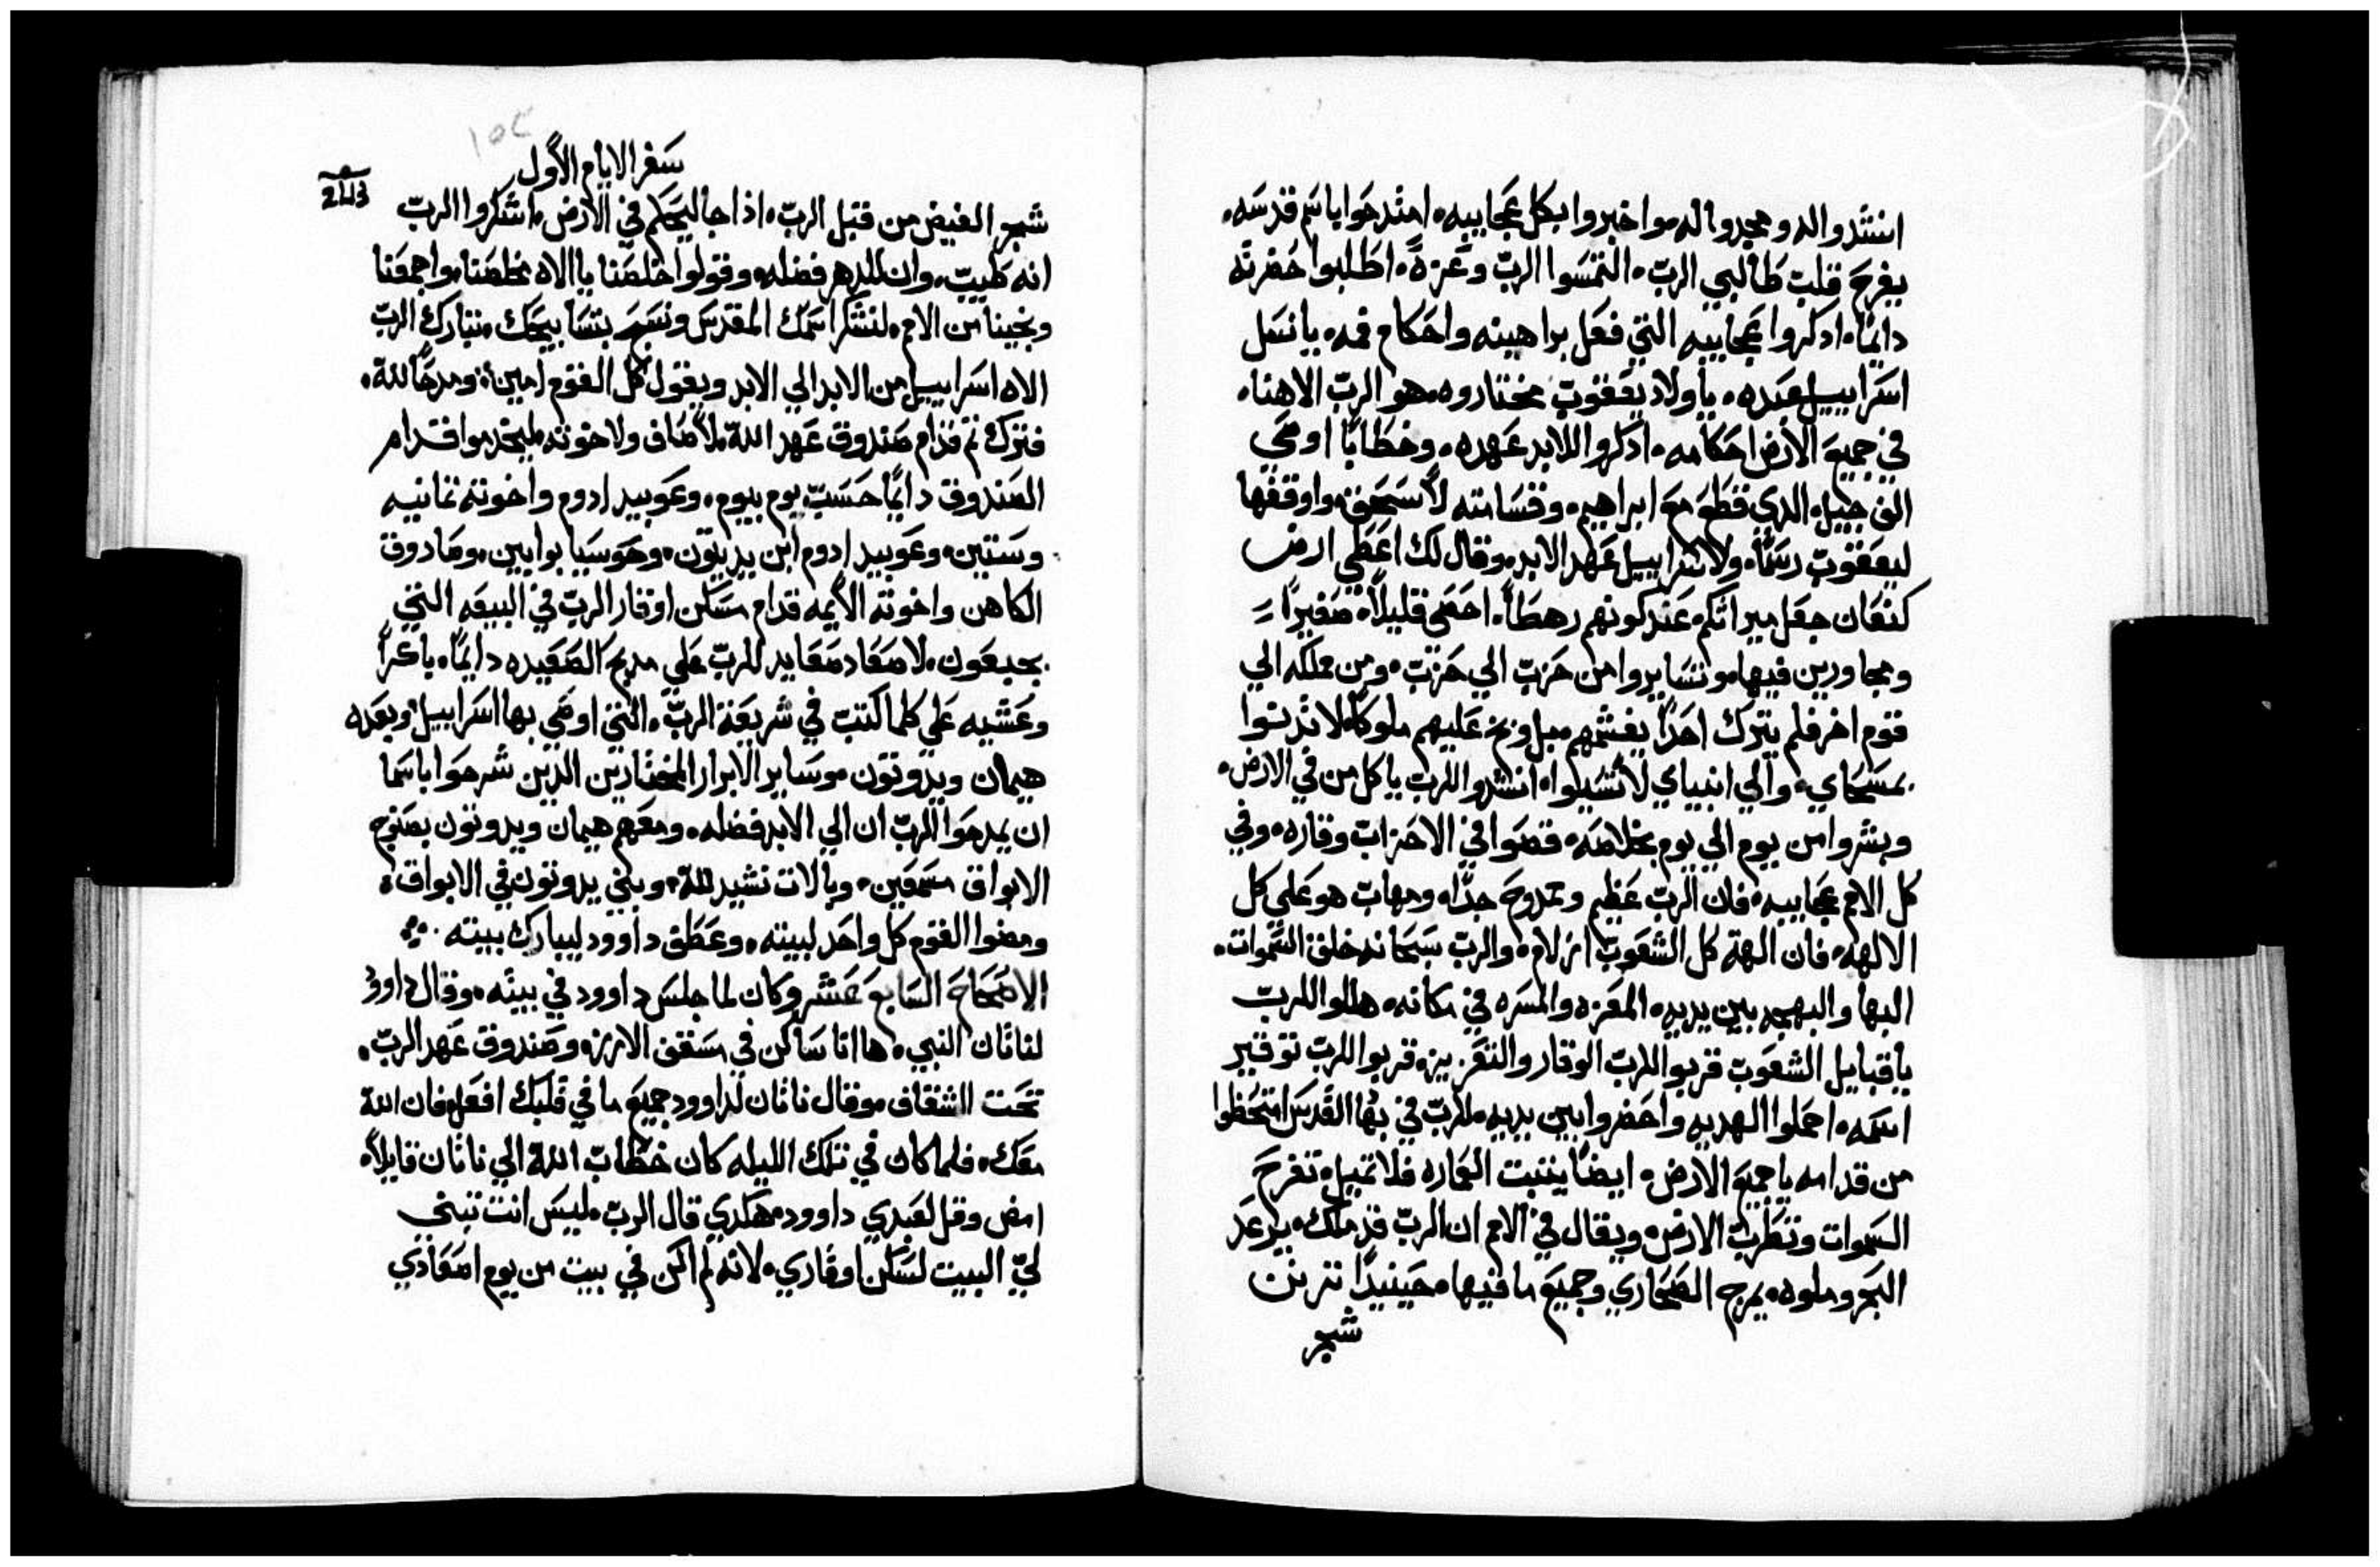 انشدوا له ومجدوا له واخبروا بكل عجايبه امتدحوا باسم قدسه
يفرح قلب طالبي الرب التمسوا الرب وعزة اطلبوا حضرته
دايما ادكروا عجايبه التي فعل براهينه واحكام فمه يا نسل
اسراييل عبده يا ولاد يعقوب مختاروه هو الرب الاهنا
في جميع الارض احكامه ادكروا للابد عهده وخطابا اوصي
الف جيل الدي قطع مع ابراهيم وقسامته لاسحق واوقفها
ليعقوب رسما ولاسراييل عهد الابد وقال لك اعطي ارض
كنعان جعل ميراثكم عند كونهم رهطا احصي قليلا صغيرا
ومجاورين فيها وتسايروا من حزب الي حزب ومن مملكه الي
قوم اخر فلم يترك احدا يغشمهم بل وبخ عليهم ملوكا لا تدنوا
بمسحاي والي انبياي لا تسيلوا انشدوا للرب يا كل من في الارض
وبشروا من يوم الي يوم بخلاصه قصوا في الاحزاب وقاره وفي
كل الامم عجايبه فان الرب عظيم وممدوح جدا ومهاب هو علي كل
الالهه فان الهة كل الشعوب ازلام والرب سبحانه خلق السموات
البها والبهجه بين يديه المعزه والمسره في مكانه هللوا للرب
يا قبايل الشعوب قربوا للرب الوقار والتعزيزه قربوا للرب توقير
اسمه احملوا الهديه واحضروا بين يديه للرب في بها القدس اتحظوا
من قدامه يا جميع الارض ايضا ينتبت العماره فلا تميل تفرح
السموات وتطرب الارض ويقال في الامم ان الرب قد ملك يرعد
البحر وملوه يمرح الصحاري وجميع ما فيها حينيدا تترنن
شجر
سفر الايام الاول
شجر الغيض من قبل الرب اذا جا ليحكم في الارض اشكروا الرب
انه طيب وان للدهر فضله وقولوا خلصنا يا الاه مخلصنا واجمعنا
ونجينا من الامم لنشكر اسمك المقدس ونسبح بتسابيحك تبارك الرب
الاه اسراييل من الابد الي الابد ويقول كل القوم امين ومدحا لله
فترك تم قدام صندوق عهد الله لاصاف ولاخوته ليخدموا قدام
الصندوق دايما حسب يوم بيوم وعوبيد ادوم واخوته تمانيه
وستين وعوبيد ادوم ابن يديتون وحوسيا بوابين وصادوق
الكاهن واخوته الايمه قدام مسكن اوقار الرب في البيعه التي
بجبعون لاصعاد صعايد للرب علي مدبح الصعيده دايما باكرا
وعشيه علي كلما كتب في شريعة الرب التي اوصي بها اسراييل وبعده
هيمان ويدوتون وساير الابرار المختارين الدين شرحوا باسما
ان يمدحوا الرب ان الي الابد فضله ومعهم هيمان ويدوتون بصنوج
الابواق مسمعين وبالات نشيد لله وبني يدوتون في الابواق
ومضوا القوم كل واحد لبيته وعطق داوود ليبارك بيته
الاصحاح السابع عشر وكان لما جلس داوود في بيته وقال داوود
لناتان النبي ها انا ساكن في سقف الارزه وصندوق عهد الرب
تحت الشقاف وقال ناتان لداوود جميع ما في قلبك افعل فان الله
معك فلما كان في تلك الليله كان خطاب الله الي ناتان قايلا
امض وقل لعبدي داوود هكدي قال الرب ليس انت تبني
لي البيت لسكن اوقاري لانه لم اكن في بيت من يوم اصعادي